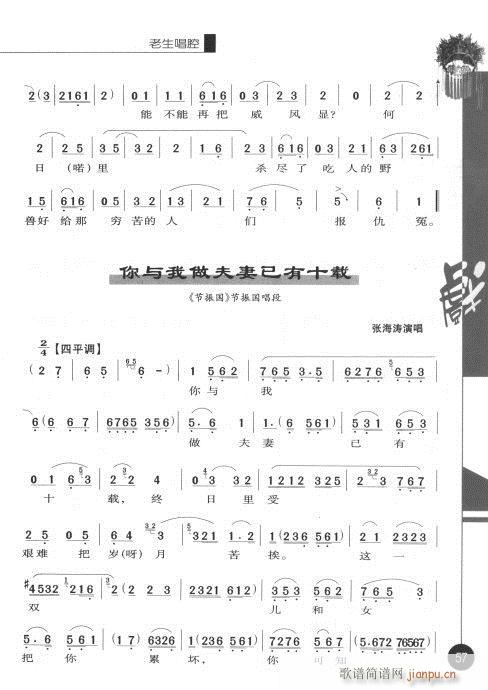 老生唱腔
2(3 2161 2) | 0 1 1 1 616 | 0 3 2 3 | 0 2 |
能不能再把 威风显? 何
2 2 5 | 2 5 | 0 3 2 3 616 | 0 1 6 3 261 |
日 (喏)里 杀尽了吃人的野
1 5 616 | 0 1 3 2 | 0 5 6 1 | 0 2 3 | 5 |
兽好给那 穷苦的人 们 报仇冤。
你与我做夫妻已有十载
《节振国》节振国唱段
张海涛演唱
2/4 【四平调】
(2 7 | 6 5 | 6 -) | 1 562 | 765 | 6276 653 |
你与 我
6(6 6 7 | 6765 356) | 5·6 1 | 1·(6 561) | 5 6 5 |
做 夫妻 已有
0 1 63 | 2 2 | 0 5 6 | 0 2 3 | 1212 325 | 2 3 767 |
十 载, 终 日里受
2 5 0 5 | 6 4 | 3 2 | 1 (236 561) | 5 6 5 |
艰难 把 岁(呀)月 苦 挨。 这一
#4532 216 | 2 | 2·3 2 | 2321 612 | 765 3 |
双 儿和女
5·6 561 | (1 7 6326 | 1·(236 561) | 7276 | (5·672 76567 |
把你 累 坏, 你 可知
57
歌谱简谱网
jianpu.cn